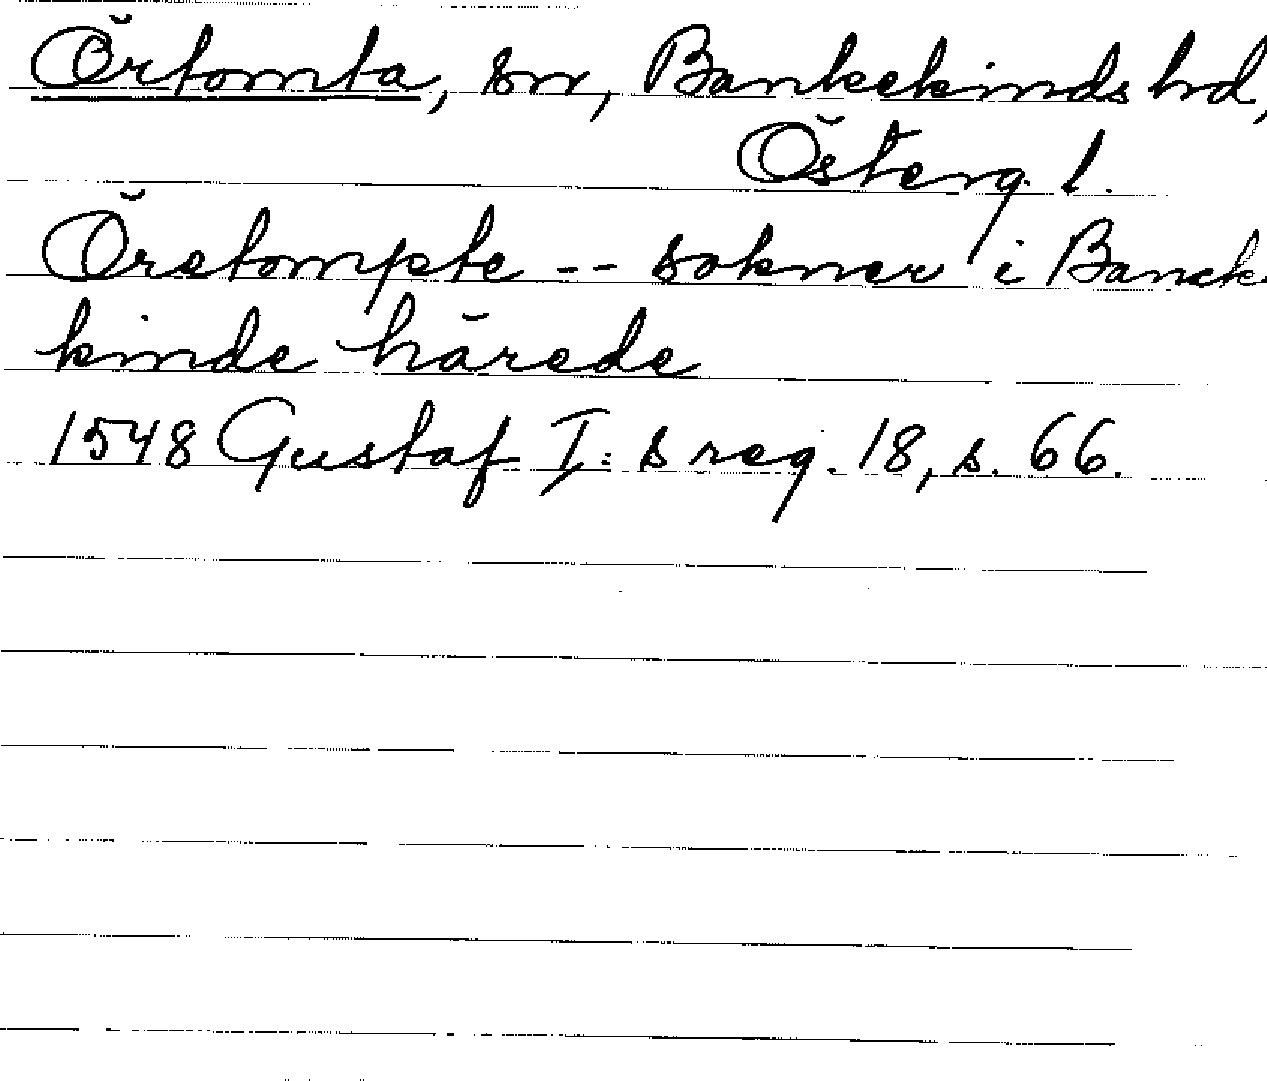 Örtomta, sn, Bankekinds hd,
Österg. l.
Öretompte -- sokner i Banck
kinde härede
1548 Gustaf I:s reg. 18, s. 66.